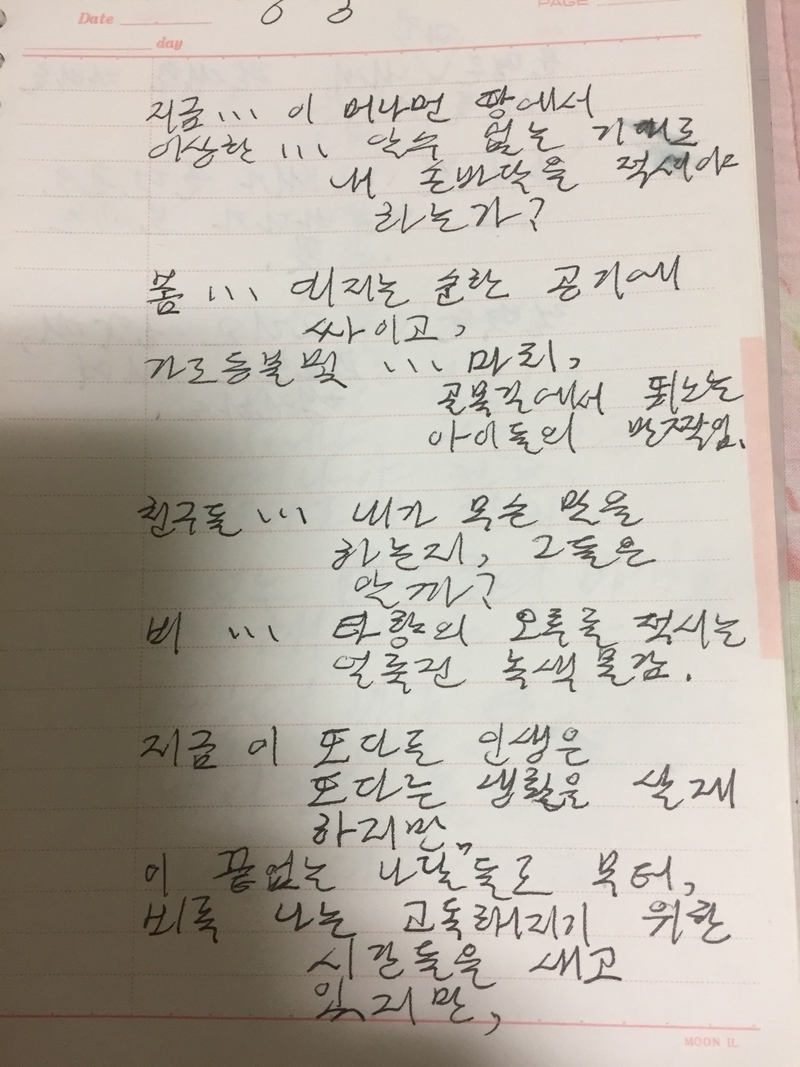 Date
PAGE
day
지금 ... 이 머나먼 땅에서
이상한 ... 알수 없는 기대로
내 손바닥을 적셔야
하는가?
봄 ... 터지는 순한 공기에
싸이고,
가로등불 몇 ... 마리,
골목길에서 뛰노는
아이들의 반짝임.
친구들 ... 내가 무슨 말을
하는지, 그들은
알까?
비 ... 타향의 오후를 적시는
얼룩진 녹색 물감.
지금 이 또다른 인생은
또다른 생활을 살재
하지만,
이 끝없는 나달들로 부터,
비록 나는 고독해지기 위한
시간들을 새고
있지만,
MOON IL